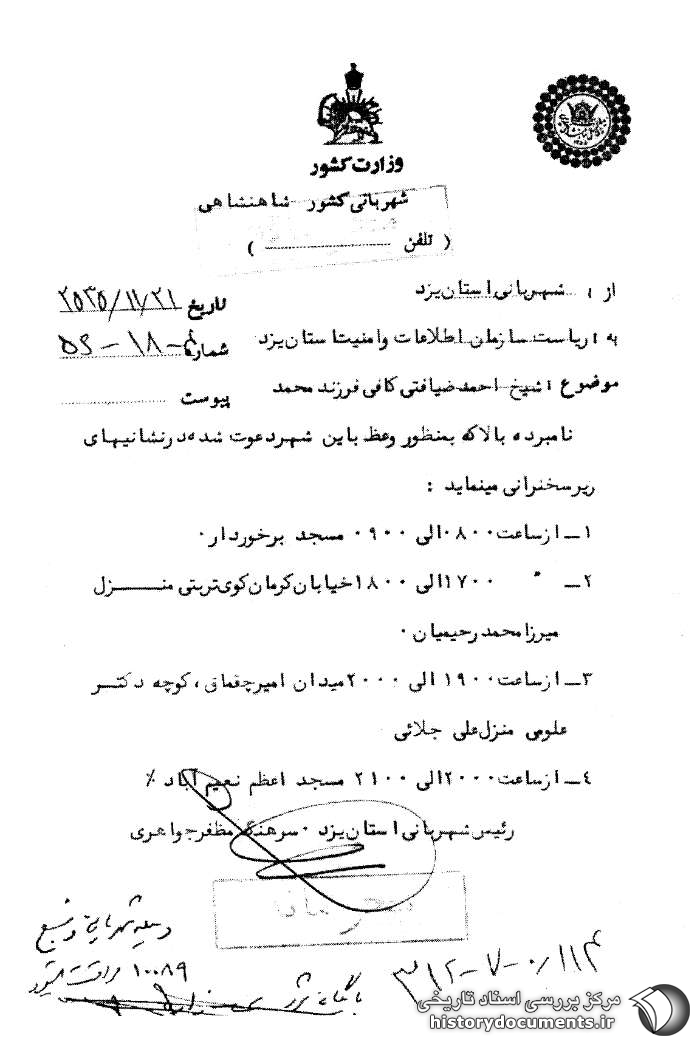 وزارت کشور
شهربانی کشور شاهنشاهی
( تلفن )
از : شهربانی استان یزد
تاریخ ۲۵۳۵/۱۱/۲۱
به : ریاست سازمان اطلاعات وامنیت استان یزد
شماره ۵۶-۱۸-
موضوع : شیخ احمد ضیافتی کافی فرزند محمد
پیوست
نامبرده بالا که بمنظور وعظ باین شهر دعوت شده در نشانیهای
زیر سخنرانی مینماید :
۱ــ از ساعت ۰۸۰۰ الی ۰۹۰۰ مسجد برخوردار ۰
۲ــ " ۱۷۰۰ الی ۱۸۰۰ خیابان کرمان کوی تربتی منــزل
میرزا محمد رحیمیان ۰
۳ــ از ساعت ۱۹۰۰ الی ۲۰۰۰ میدان امیرچقماق ، کوچه دکتــر
علومی منزل علی جلائی
۴ــ از ساعت ۲۰۰۰ الی ۲۱۰۰ مسجد اعظم نعیم آباد ٪
رئیس شهربانی استان یزد ۰ سرهنگ مظفر جواهری
۱۰۰۸۹
۳۱۲-۷-۰/۱۱۴
مرکز بررسی اسناد تاریخی
historydocuments.ir